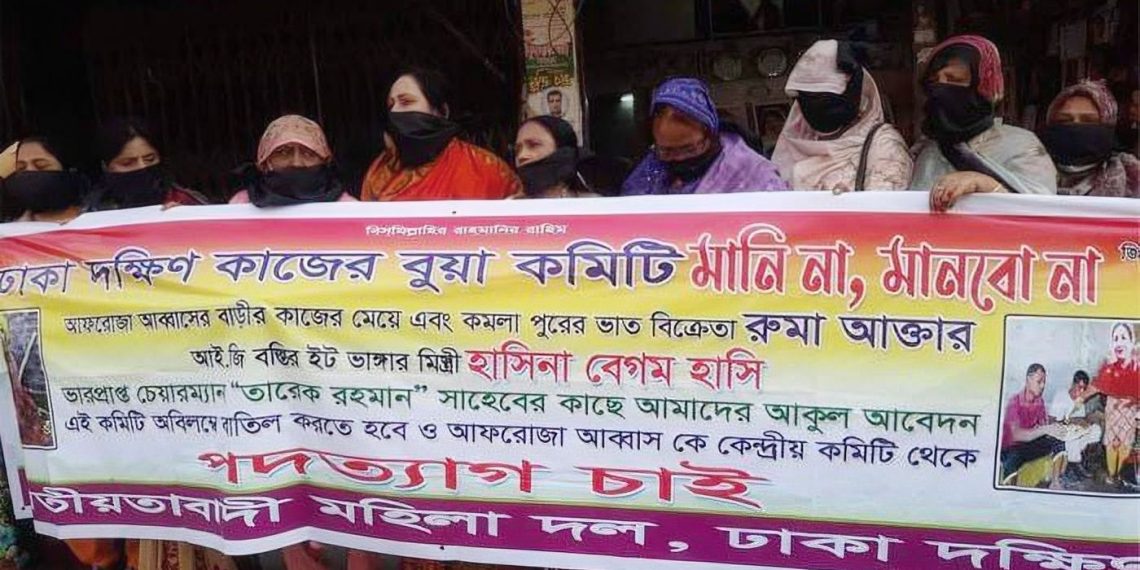 বিসমিল্লাহির রাহমানির রাহিম
ঢাকা দক্ষিণ কাজের বুয়া কমিটি মানি না, মানবো না
আফরোজা আব্বাসের বাড়ীর কাজের মেয়ে এবং কমলা পুরের ভাত বিক্রেতা রুমা আক্তার
আই.জি বস্তির ইট ভাঙ্গার মিস্ত্রী হাসিনা বেগম হাসি
ভারপ্রাপ্ত চেয়ারম্যান "তারেক রহমান" সাহেবের কাছে আমাদের আকুল আবেদন
এই কমিটি অবিলম্বে বাতিল করতে হবে ও আফরোজা আব্বাস কে কেন্দ্রীয় কমিটি থেকে
পদত্যাগ চাই
তীয়তাবাদী মহিলা দল, ঢাকা দক্ষিণ